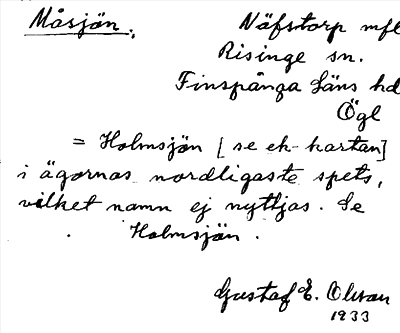 Måsjön.
Näfstorp mfl
Risinge sn.
Finspånga Läns hd
Ögl
= Holmsjön [se ek-kartan]
i ägornas nordligaste spets,
vilket namn ej nyttjas. Se
Holmsjön.
Gustaf E. Olson
1933